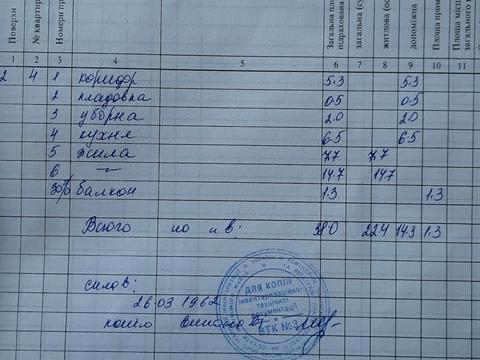 Поверхи № кварти Номери пр Загальна пло підрахована загальна (су житлова (ос допоміжна Площа прим Площа місц загального к
1 2 3 4 5 6 7 8 9 10 11
2 4 1 коридор 5.3 5.3
2 кладовка 0.5 0.5
3 уборна 2.0 2.0
4 кухня 6.5 6.5
5 жила 7.7 7.7
6 –"– 14.7 14.7
30% балкон 1.3 1.3
Всього по кв: 38.0 22.4 14.3 1.3
склав:
26.03.1962
копію
ДЛЯ КОПІЙ
інвентаризаційно-
технічної
документації
ВТК №3